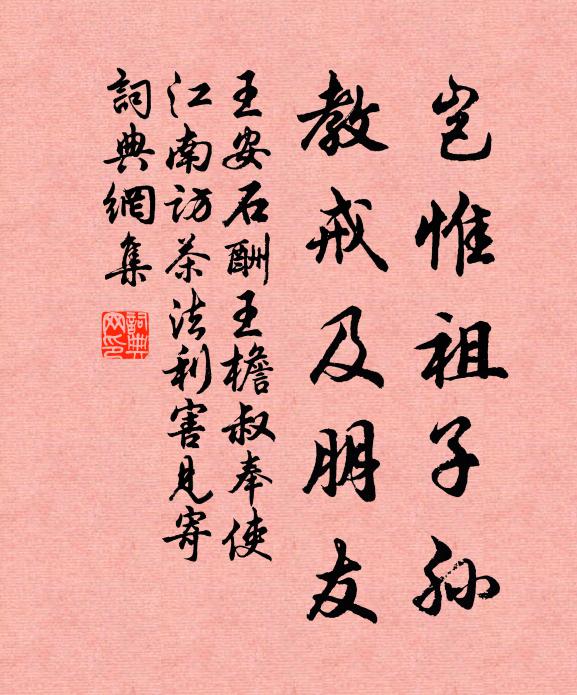 岂惟祖子孙
教戒及朋友
王安石酬王檐叔奉使
江南访茶法利害见寄
詞典網集
詞典網印